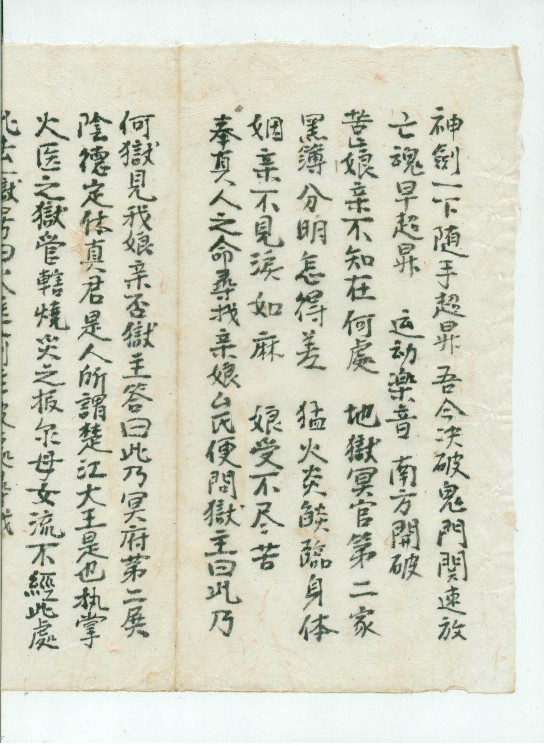 神劍一下随手超昇吾今决破鬼門関速放
亡魂早超昇 运动樂音 南方開破
苦娘亲不知在何處 地獄冥官第二家
黑簿分明怎得差 猛火炎燄臨身体
姻亲不見淚如麻 娘受不尽苦
奉真人之命尋找亲娘厶氏便問獄主曰此乃
何獄見我娘亲否獄主答曰此乃冥府第二殿
陰德定休真君是人所謂楚江大王是也执掌
火医之獄管轄燒災之报尔母女流不經此處